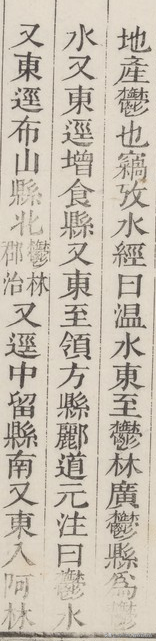 地產鬱也竊攷水經曰温水東至鬱林廣鬱縣爲鬱
水又東逕增食縣又東至領方縣酈道元注曰鬱水
又東逕布山縣北鬱林郡治又逕中留縣南又東入阿林